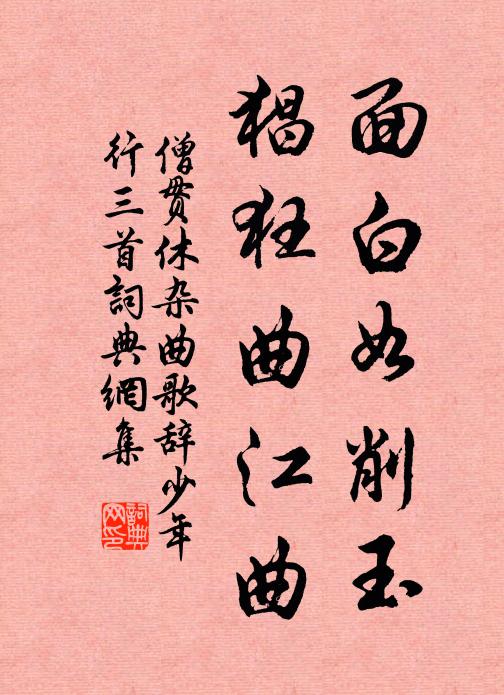 面白如削玉
猖狂曲江曲
僧贯休杂曲歌辞少年
行三首詞典網集
詞典
网印